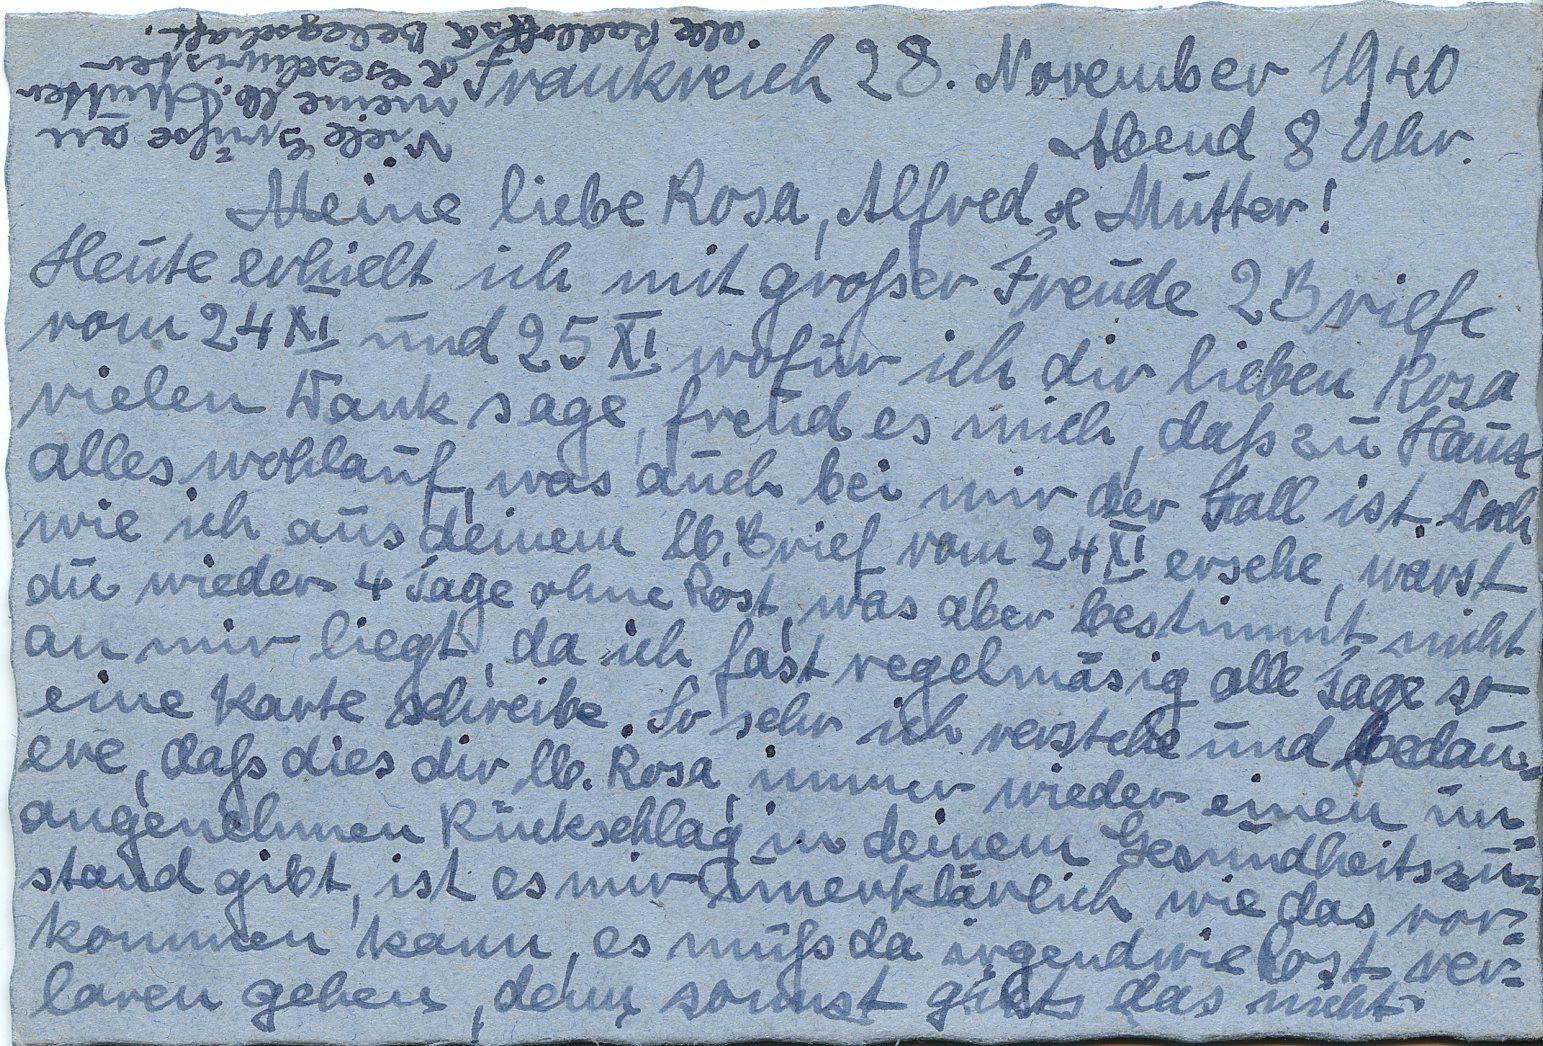 Frankreich 28. November 1940
Abend 8 Uhr.
Meine liebe Rosa, Alfred & Mutter!
Heute erhielt ich mit großer Freude 2 Briefe
vom 24 XI und 25 XI wofür ich dir lieben Rosa
vielen Dank sage, freud es mich, daß zu Hause
alles wohlauf, was auch bei mir der Fall ist. Doch
wie ich aus deinem lb. Brief vom 24 XI ersehe, warst
du wieder 4 Tage ohne Post, was aber bestimmt nicht
an mir liegt, da ich fast regelmäsig alle Tage so
eine Karte schreibe. So sehr ich verstehe und bedau=
ere, daß dies dir lb. Rosa immer wieder einen un=
angenehmen Rückschlag in deinem Gesundheitszu=
stand gibt, ist es mir unerklärlich wie das vor=
kommen kann, es muß da irgendwie Post ver=
loren gehen, denn sonnst gibts das nicht
Viele Grüße an
meine lb. Mutter
& Geschwister
alle Radloffs & Belegschaft.